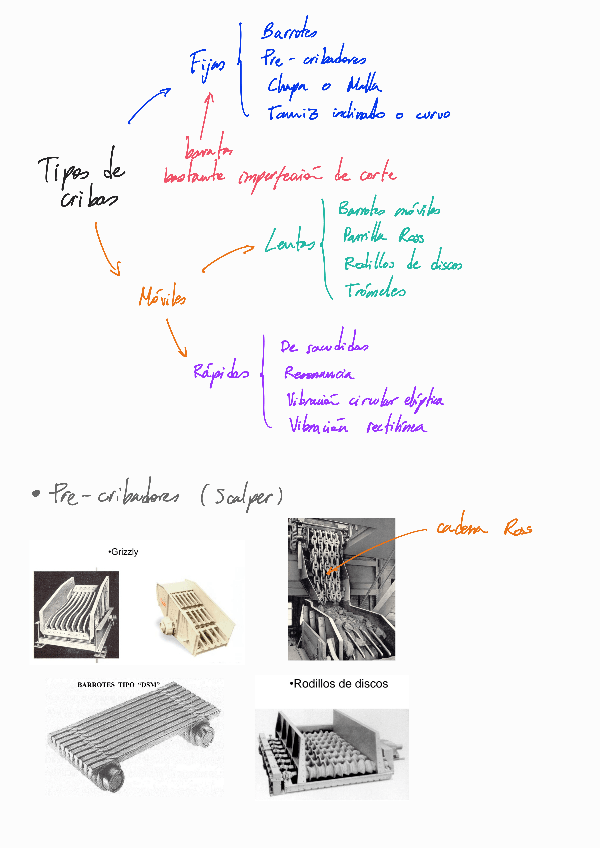 Tipos de
cribas
Fijas
Barrotes
Pre-cribadores
Chapa o Malla
Tamiz inclinado o curvo
baratas
bastante imperfección de corte
Móviles
Lentas
Barrotes móviles
Parrilla Ross
Rodillos de discos
Trómeles
Rápidas
De sacudidas
Resonancia
Vibración circular elíptica
Vibración rectilínea
• Pre-cribadores (Scalper)
•Grizzly
cadena Ross
BARROTES TIPO "DSM"
•Rodillos de discos